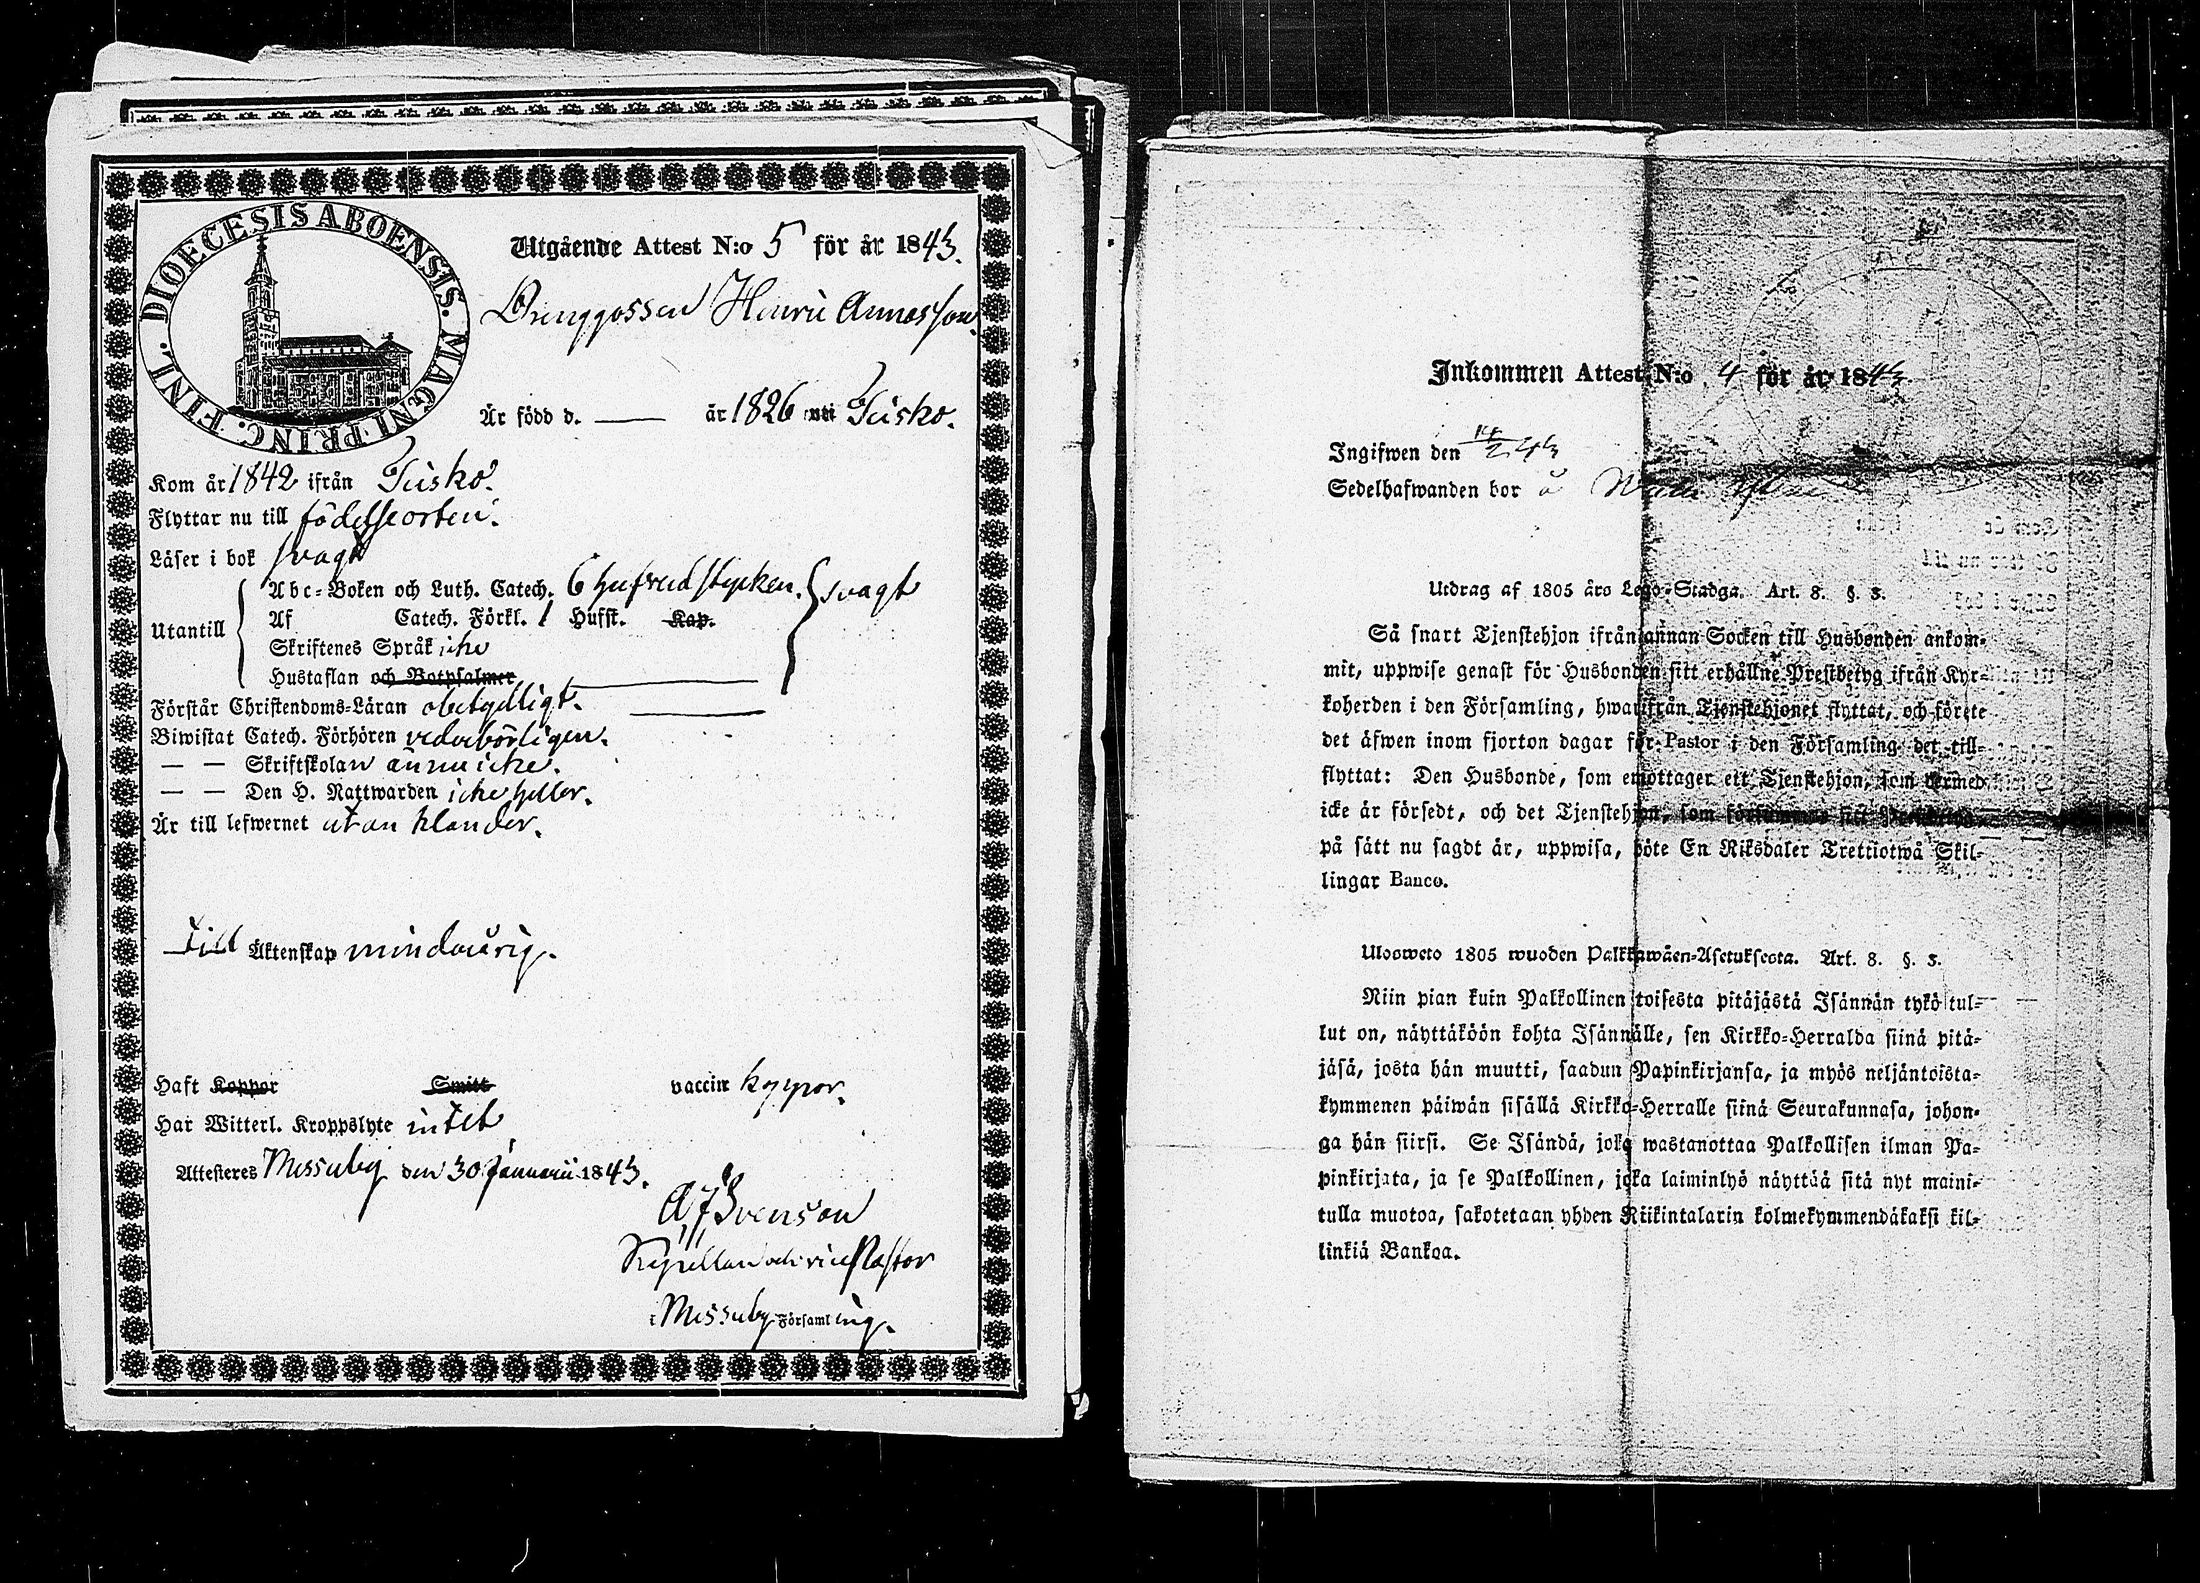 DIOECESIS ABOENSIS. MAGNI. PRINC. FINL.
Utgående Attest N:o 5 för år 1843.
Drenggossen Henric Annasson.
Är född d. — år 1826 uti Tusko.
Kom år 1842 ifrån Tusko.
Flyttar nu till födelseorten.
Läser i bok svagt
Utantill
Abc-Boken och Luth. Catech. 6 hufvudstycken. svagt
Af Catech. Förkl. 1 Hufst. Kap.
Skriftenes Språk icke
Hustaflan och Botpsalmer
Förstår Christendoms-Läran obetydligt.
Biwistat Catech. Förhören vederbörligen.
— — Skriftskolan ännu icke.
— — Den H. Nattwarden icke heller.
Är till lefwernet utan klander.
Till Äktenskap minderårig.
Haft Koppor Smitt vaccin koppor.
Har Witterl. Kroppslyte intet
Attesteres Messuby den 30 Januarii 1843.
Svenson
Capellan och vice Pastor
i Messuby Församling.
Inkommen Attest N:o 4 för år 1843.
Ingifwen den 14/2 43
Sedelhafwanden bor å
Utdrag af 1805 års Lego-Stadga. Art. 8. §. 3.
Så snart Tjenstehjon ifrån annan Socken till Husbonden ankom-
mit, uppwise genast för Husbonden sitt erhållne Prestbetyg ifrån Kyr-
koherden i den Församling, hwarifrån Tjenstehjonet flyttat, och förete
det äfwen inom fjorton dagar för Pastor i den Församling det till-
flyttat: Den Husbonde, som emottager ett Tjenstehjon, som dermed
icke är försedt, och det Tjenstehjon, som försummar sitt Prestbetyg
på sätt nu sagdt är, uppwisa, böte En Riksdaler Trettiotwå Skil-
lingar Banco.
Uloosweto 1805 wuoden Palkkawäen-Asetuksesta. Art. 8. §. 3.
Niin pian kuin Palkollinen toisesta pitäjästä Isännän tykö tul-
lut on, näyttäköön kohta Isännälle, sen Kirkko-Herralda siinä pitä-
jäsä, josta hän muutti, saadun Papinkirjansa, ja myös neljäntoista-
kymmenen päiwän sisällä Kirkko-Herralle siinä Seurakunnasa, johon-
ga hän siirsi. Se Isändä, joka wastanottaa Palkollisen ilman Pa-
pinkirjata, ja se Palkollinen, joka laiminlyö näyttää sitä nyt maini-
tulla muotoa, sakotetaan yhden Riikintalarin kolmekymmendäkaksi kil-
linkiä Bankoa.